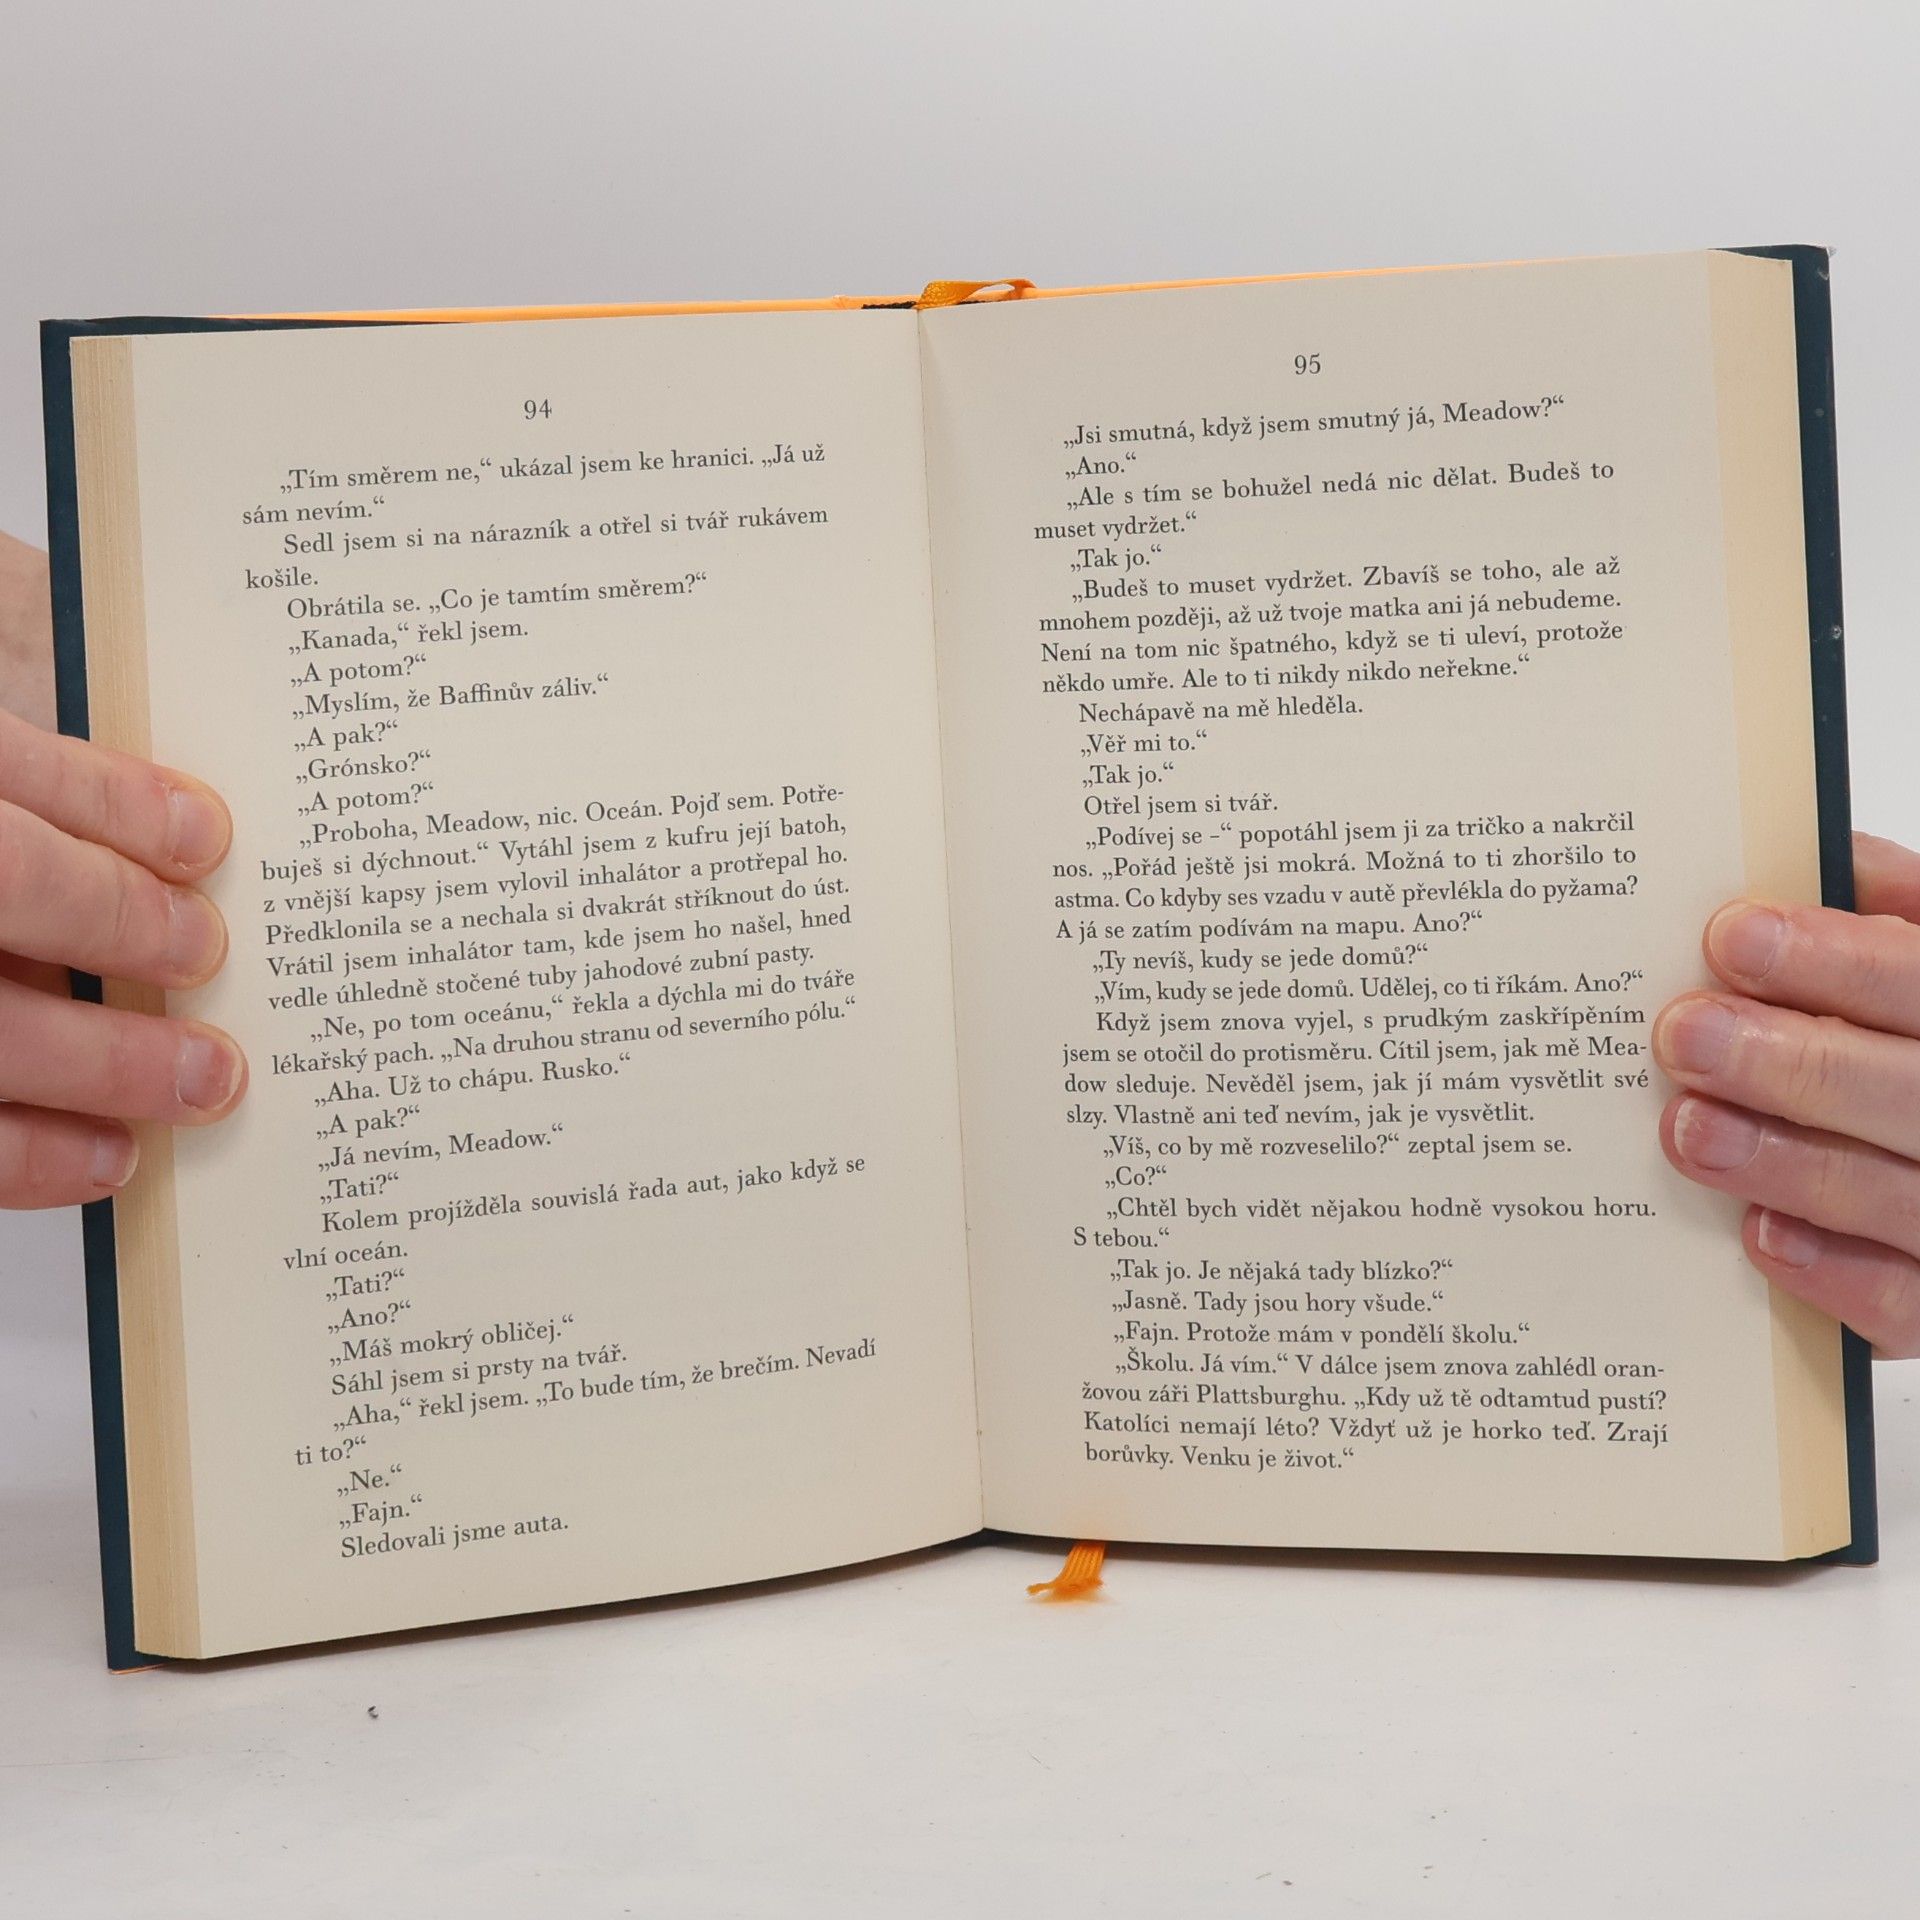 94
„Tím směrem ne,“ ukázal jsem ke hranici. „Já už
sám nevím.“
Sedl jsem si na nárazník a otřel si tvář rukávem
košile.
Obrátila se. „Co je tamtím směrem?“
„Kanada,“ řekl jsem.
„A potom?“
„Myslím, že Baffinův záliv.“
„A pak?“
„Grónsko?“
„A potom?“
„Proboha, Meadow, nic. Oceán. Pojď sem. Potře-
buješ si dýchnout.“ Vytáhl jsem z kufru její batoh,
z vnější kapsy jsem vylovil inhalátor a protřepal ho.
Předklonila se a nechala si dvakrát stříknout do úst.
Vrátil jsem inhalátor tam, kde jsem ho našel, hned
vedle úhledně stočené tuby jahodové zubní pasty.
„Ne, po tom oceánu,“ řekla a dýchla mi do tváře
lékařský pach. „Na druhou stranu od severního pólu.“
„Aha. Už to chápu. Rusko.“
„A pak?“
„Já nevím, Meadow.“
„Tati?“
Kolem projížděla souvislá řada aut, jako když se
vlní oceán.
„Tati?“
„Ano?“
„Máš mokrý obličej.“
Sáhl jsem si prsty na tvář.
„Aha,“ řekl jsem. „To bude tím, že brečím. Nevadí
ti to?“
„Ne.“
„Fajn.“
Sledovali jsme auta.
95
„Jsi smutná, když jsem smutný já, Meadow?“
„Ano.“
„Ale s tím se bohužel nedá nic dělat. Budeš to
muset vydržet.“
„Tak jo.“
„Budeš to muset vydržet. Zbavíš se toho, ale až
mnohem později, až už tvoje matka ani já nebudeme.
Není na tom nic špatného, když se ti uleví, protože
někdo umře. Ale to ti nikdy nikdo neřekne.“
Nechápavě na mě hleděla.
„Věř mi to.“
„Tak jo.“
Otřel jsem si tvář.
„Podívej se –“ popotáhl jsem ji za tričko a nakrčil
nos. „Pořád ještě jsi mokrá. Možná to ti zhoršilo to
astma. Co kdyby ses vzadu v autě převlékla do pyžama?
A já se zatím podívám na mapu. Ano?“
„Ty nevíš, kudy se jede domů?“
„Vím, kudy se jede domů. Udělej, co ti říkám. Ano?“
Když jsem znova vyjel, s prudkým zaskřípěním
jsem se otočil do protisměru. Cítil jsem, jak mě Mea-
dow sleduje. Nevěděl jsem, jak jí mám vysvětlit své
slzy. Vlastně ani teď nevím, jak je vysvětlit.
„Víš, co by mě rozveselilo?“ zeptal jsem se.
„Co?“
„Chtěl bych vidět nějakou hodně vysokou horu.
S tebou.“
„Tak jo. Je nějaká tady blízko?“
„Jasně. Tady jsou hory všude.“
„Fajn. Protože mám v pondělí školu.“
„Školu. Já vím.“ V dálce jsem znova zahlédl oran-
žovou záři Plattsburghu. „Kdy už tě odtamtud pustí?
Katolíci nemají léto? Vždyť už je horko teď. Zrají
borůvky. Venku je život.“